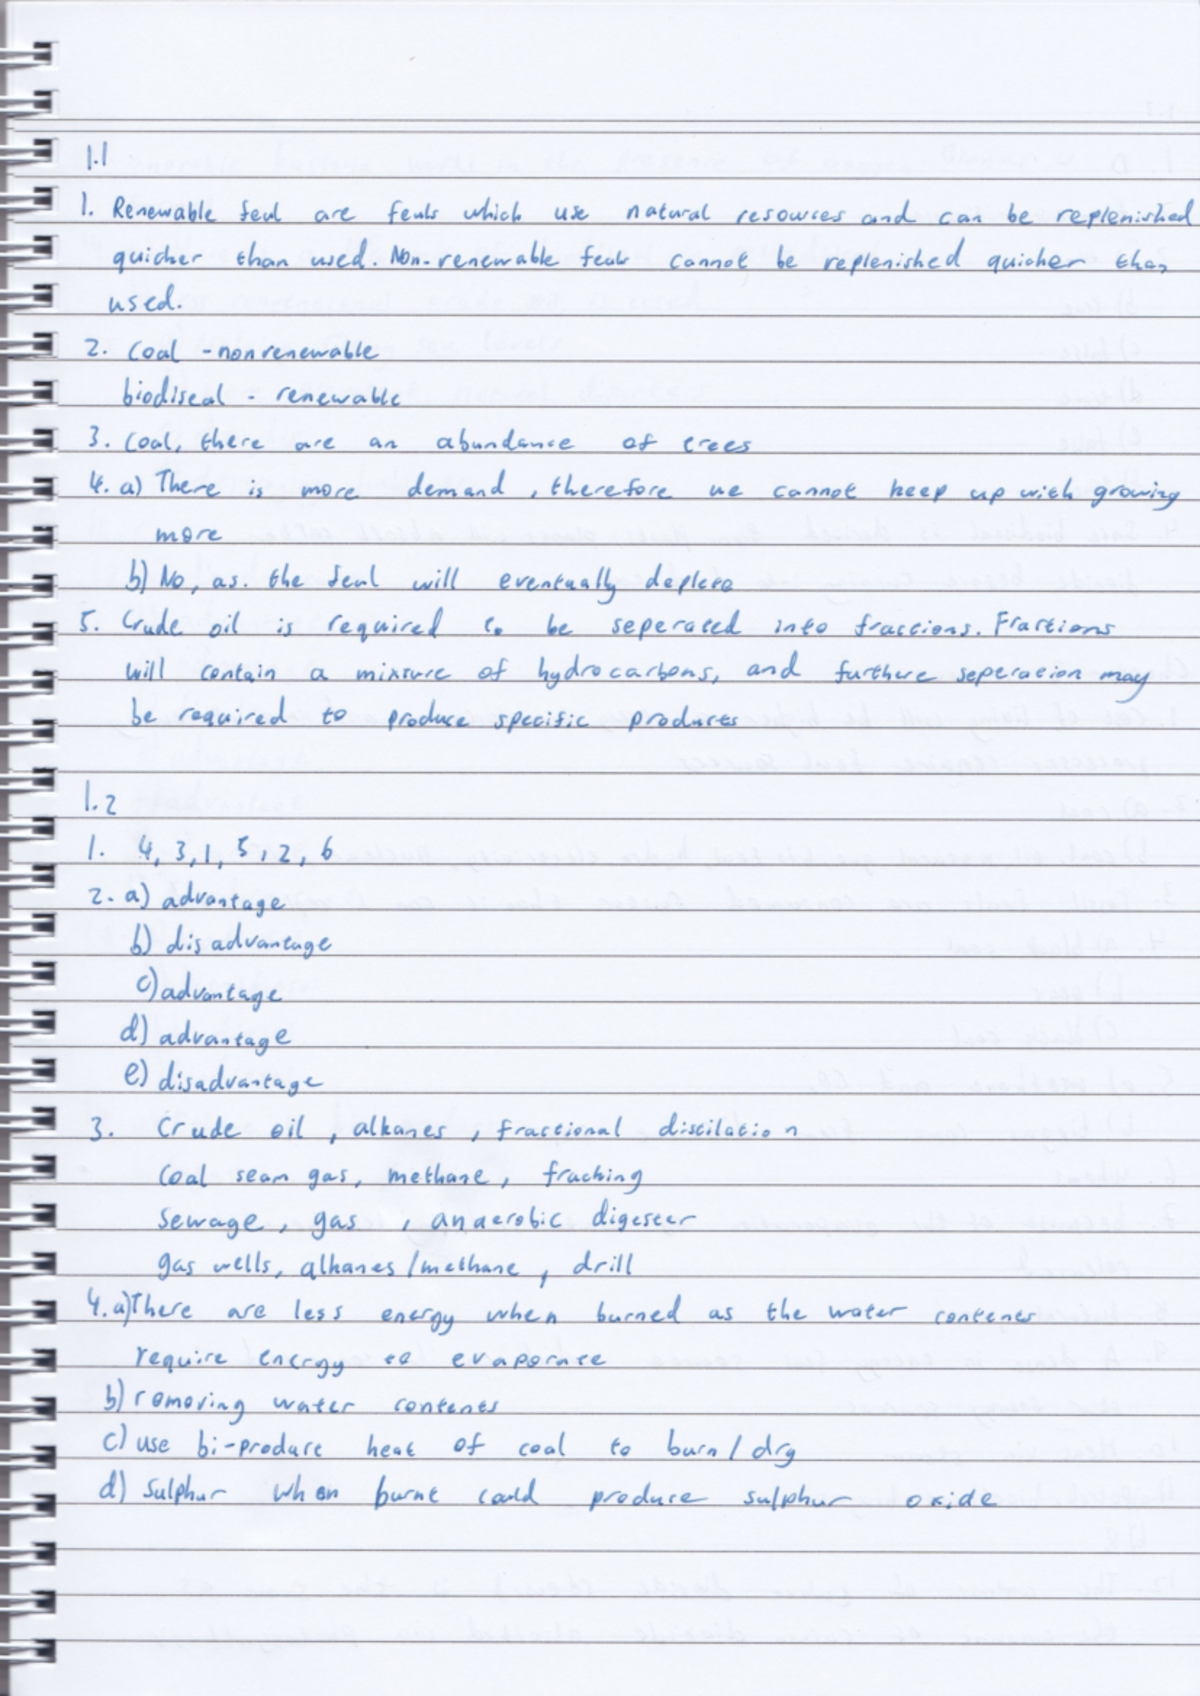 1.1
1. Renewable feul are feuls which use natural resources and can be replenished
quicker than used. Non-renewable feuls cannot be replenished quicker than
used.
2. Coal - nonrenewable
biodiseal - renewable
3. Coal, there are an abundance of trees
4. a) There is more demand, therefore we cannot keep up with growing
more
b) No, as. the feul will eventually deplete
5. Crude oil is required to be seperated into fractions. Fractions
will contain a mixture of hydrocarbons, and furthere seperation may
be required to produce specific products
1.2
1. 4, 3, 1, 5, 2, 6
2. a) advantage
b) disadvantage
c) advantage
d) advantage
e) disadvantage
3. Crude oil, alkanes, fractional distilation
Coal seam gas, methane, fracking
Sewage, gas, anaerobic digester
gas wells, alkanes/methane, drill
4. a) There are less energy when burned as the water contents
require energy to evaporate
b) removing water contents
c) use bi-produce heat of coal to burn/dry
d) Sulphur when burnt could produce sulphur oxide